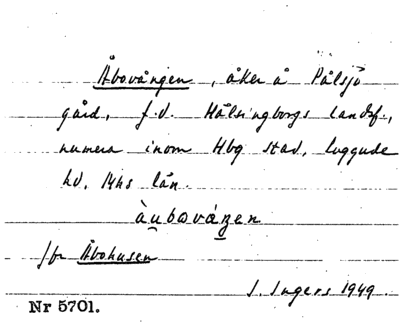 Åbovången, åker å Pålsjö
gård, f.d. Hälsingborgs landsf.,
numera inom Hbg stad, Luggude
hd, Mhs län.
àu̮bováŋen
/br Åbohusen
I. Ingers 1949.
Nr 5701.